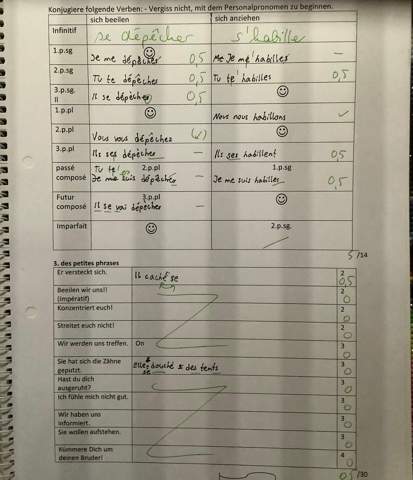 Konjugiere folgende Verben: - Vergiss nicht, mit dem Personalpronomen zu beginnen.
sich beeilen sich anziehen
Infinitif se dépêcher s'habille
1.p.sg Je me dépêcher 0,5 Me Je me habilles —
2.p.sg Tu te dépêcher 0,5 Tu te habilles 0,5
3.p.sg. Il se dépêcher 0,5
Il
1.p.pl Nous nous habillons ✓
2.p.pl Vous vous dépêchez (✓)
3.p.pl Ils ses dépêcher — Ils ses habillent 0,5
passé composé Tu te 2.p.pl 1.p.sg
Je me suis dépêcher — Je me suis habilles 0,5
Futur composé 3.p.pl
Il se vai dépêcher —
Imparfait 2.p.sg
5/14
3. des petites phrases
Er versteckt sich. Il caché se 2 0,5
Beeilen wir uns!! (impératif) 2 0
Konzentriert euch! 2 0
Streitet euch nicht! 2 0
Wir werden uns treffen. On 3 0
Sie hat sich die Zähne geputzt. Elle se douché des tents 3 0
Hast du dich ausgeruht? 3 0
Ich fühle mich nicht gut. 3 0
Wir haben uns informiert. 3 0
Sie wollen aufstehen. 3 0
Kümmere Dich um deinen Bruder! 4 0
0,5/30